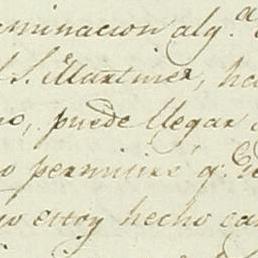 eminacion alg.a
l S. Martinez, ha
no, puede llegar a
o permitiré q.e
yo estoy hecho ca